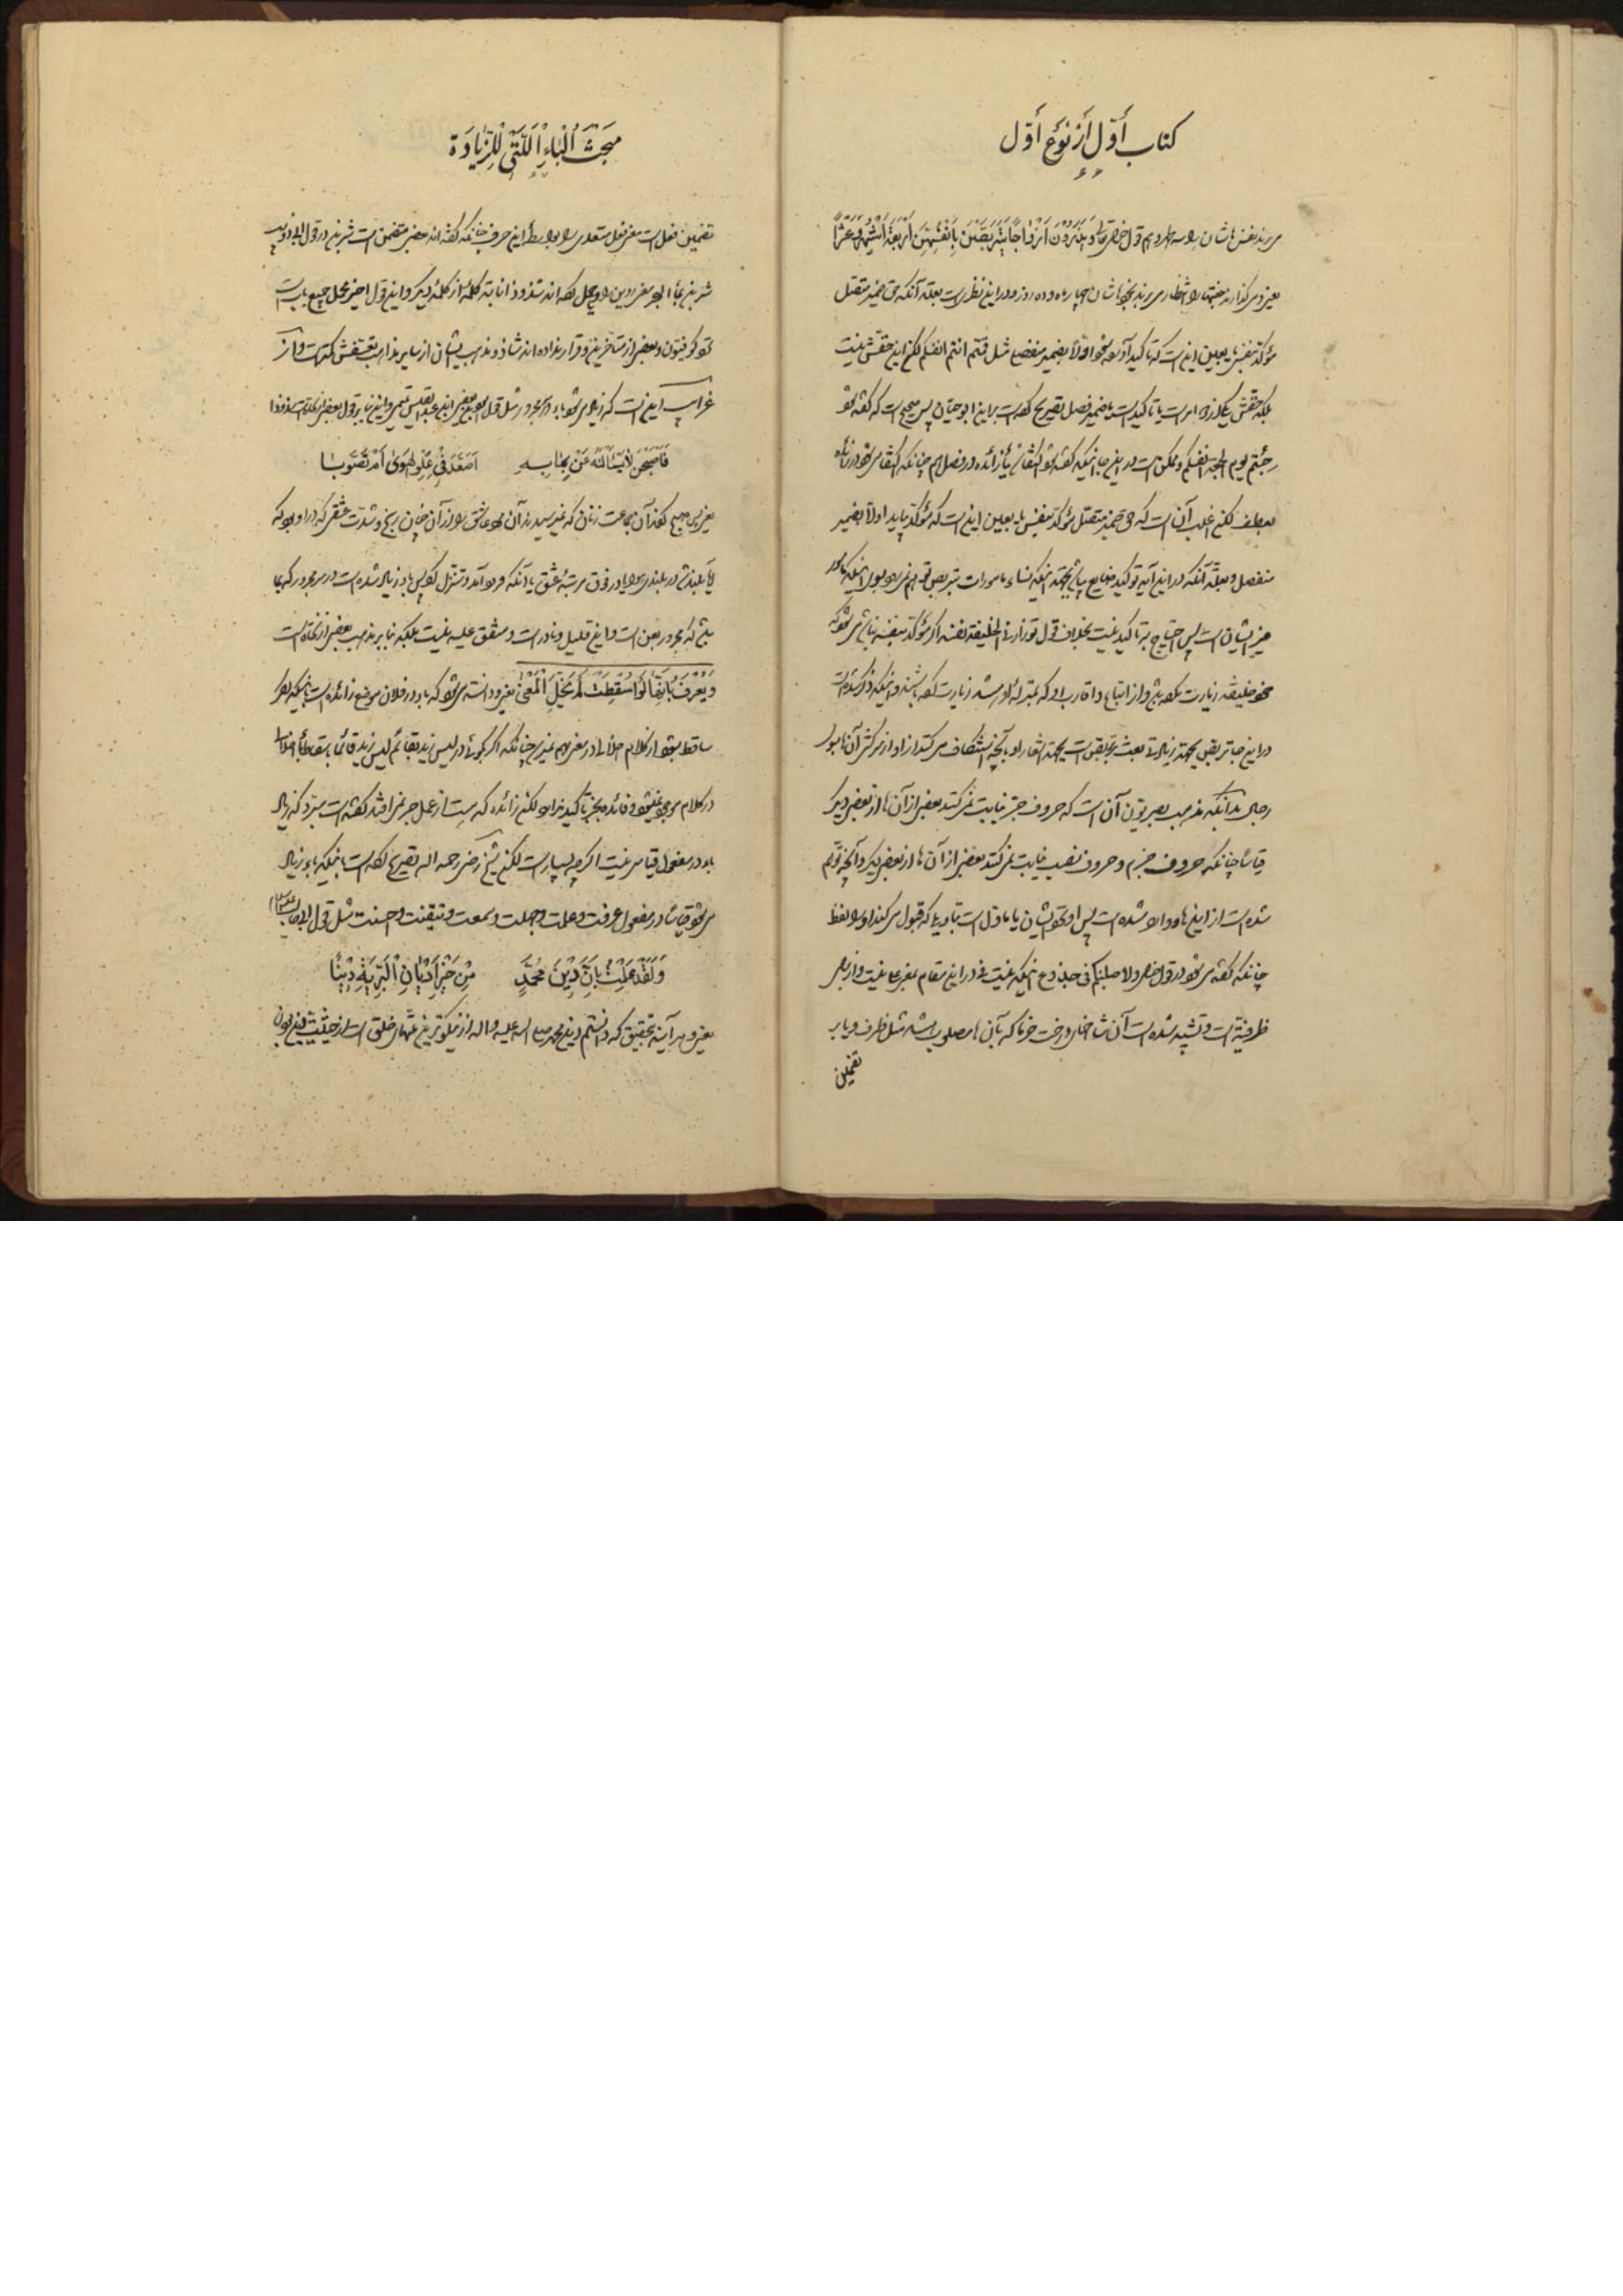 کتاب أوّل أز نوع أوّل
می‌برند نفس‌هاشان را سه طهر و هم قول حضرتعالی وَ یَذَرُونَ أَزْواجًا یَتَرَبَّصْنَ بِأَنْفُسِهِنَّ أَرْبَعَةَ أَشْهُرٍ وَعَشْرًا
یعنی و میگذارند جفتها را انتظار می‌برند بخودشان چهار ماه و ده روز و در این نظر است بعلة آنکه حق ضمیر متصل
مؤکد بنفس یا بعین این است که تاکید آورده بشود اولا بضمیر منفصل مثل قمتم انتم انفسکم لکن این حقش نیست
بلکه حقش یکی از دو امر است یا تاکید است یا ضمیر فصل تصریح کرده است بر این ابوحیان پس صحیح است که گفته شود
جئتم یوم الجمعة انفسکم و ممکن است در این جا اینکه گفته شود اکتفا بباء زائده در فصل هم چنانکه اکتفا می‌شود در زیاده
بعطف لکن اغلب آن است که حق ضمیر متصل مؤکد بنفس یا بعین این است که مؤکد بیاید اولا بضمیر
منفصل و بعلة آنکه در این آیه توکید ضایع باشد بجهة اینکه نساء مامورات بتربص توهم نمی‌رود
غیر ایشان است پس احتیاج به تاکید نیست بخلاف قول تو زارنی الخلیفة نفسه اگر مؤکد بنفسه نباشد می‌شود که
خود خلیفه زیارت نکرده باشد و از اتباع و اقارب او که بمنزله او باشند زیارت کرده باشند و اینکه ذکر شده است
در این جا تربص بجهة زیادتی بعث بتربص است بجهة اشعار او بآنچه استنکاف می‌کند از او از سرکشی آن‌ها بسوی
رجال بدانکه مذهب بصریون آن است که حروف جر نیابت نمی‌کند بعضی از آن‌ها از بعض دیگر
قیاسا چنانکه حروف جزم و حروف نصب نیابت نمی‌کند بعضی از آن‌ها از بعض دیگر و آنچه توهم
شده است از این‌ها وارد شده است پس او نزد ایشان یا مأول است بتاویلی که قبول می‌کند او را لفظ
چنانکه گفته می‌شود در قول خدا و لاصلبنکم فی جذوع اینکه نیست فی در این مقام بمعنی علی نیست و از برای
ظرفیة است و تشبیه شده است آن شاخهای درخت خرما که بآن‌ها مصلوب باشد مثل ظرف و یا بر
تضمین
مَبْحَثُ الْبَاءِ اَللَّتَیْ لِلزِّیَادَةِ
تضمین فعل است معنی فعل متعدی را بواسطه این حرف چنانکه گفته‌اند بعضی متضمن است شربن در قول ابی ذؤیب
شربن بماء البحر معنی روین را و یا محمل کرده‌اند شذوذ انابة کلمه از کلمه دیگر و این قول اخیر محل جمیع باب است
نزد کوفیون و بعضی از متاخرین و قرار نداده‌اند شاذ و مذهب ایشان از سایر مذاهب تعسفش کمتر است و از
غرایب این است که زیاد می‌شود باء در مجرور مثل قول
فَاَصْبَحْنَ لاٰیَسْأَلْنَهُ عَنْ بِمٰا بِهِ اَصَعَّدَ فِی عُلْوِ الْهَوَىٰ اَمْ تَصَوَّبٰا
یعنی پس صبح کردند آن جماعت زنان که نمی‌پرسیدند آن مرد عاشق را از آن چنان رنج و شدت عشقی که در او بود که
آیا بلند شد در بلندی هوا یا در فوق مرتبه عشق یا آنکه فرود آمد و تنزل کرد پس باء زیاد شده است در مجرور که بما
باشد که مجرور بعن است و این قلیل و نادر است و متفق علیه نیست بلکه بنا بر مذهب بعضی از نحاة است
وَیُعْرَفُ بِاَنَّهٰا لَوْ اُسْقِطَتْ لَمْ یَخْتَلَّ الْمَعْنٰى یعنی و دانسته می‌شود که باء در فلان موضع زائده است باینکه اگر
ساقط بشود از کلام خللی در معنی بهم نمی‌رسد چنانکه اگر بگوئی در لیس زید بقائم لیس زید قائما بسقط باء اختلال
در کلام موجود نمیشود و فائده بجز تاکید ندارد لکن زائده که هست از عمل جر نمی‌افتد گفته است مبرد که زیاد
باء در مفعول قیاس نیست اگر چه بسیار است لکن شیخ رضی رحمه الله تصریح کرده است باینکه باء زیاد
می‌شود قیاسا در مفعول عرفت و علمت و جهلت و سمعت و تیقنت و احسنت مثل قول ابی طالب
وَلَقَدْ عَلِمْتُ بِاَنَّ دِیْنَ مُحَمَّدٍ مِنْ خَیْرِ اَدْیٰانِ الْبَرِیَّةِ دِیْنًا
یعنی و هر آینه بتحقیق که دانستم دین محمد صلی الله علیه و اله از نیکوترین دینهای خلق است از حیثیت دین بودن